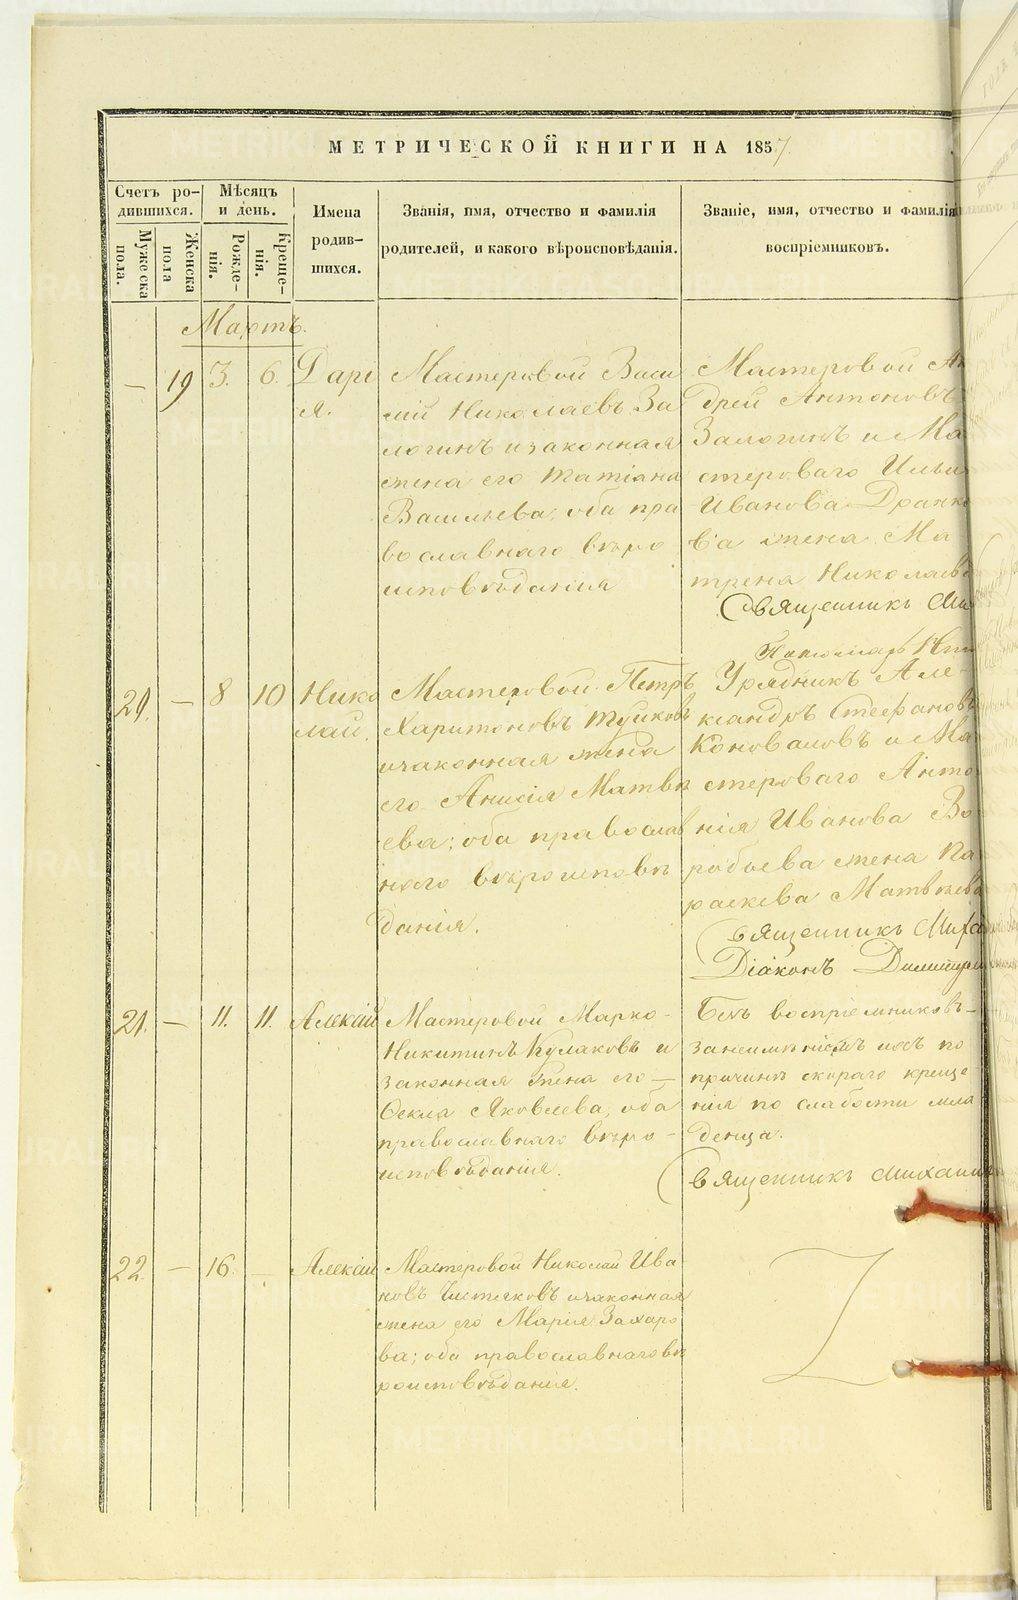 МЕТРИЧЕСКОЙ КНИГИ НА 1857
Счетъ ро-
дившихся.
Мѣсяцъ
и день.
Мужеска
пола.
Женска
пола
Рожде-
нія.
Креще-
нія.
Имена
родив-
шихся.
Званія, имя, отчество и фамилія
родителей, и какого вѣроисповѣданія.
Званіе, имя, отчество и фамилія
воспріемниковъ.
Мартъ.
— 19 3. 6. Дарі
я.
Мастеровой Васи
лій Николаевъ За
логинъ и законная
жена его Татіана
Васильева, оба пра
вославнаго вѣро
исповѣданія
Мастеровой Ан
дрей Антоновъ
Залогинъ и Ма
стероваго Ильи
Иванова
ва жена Ма
трена Николаев
Священникъ Ми
20. — 8 10 Нико
лай.
Мастеровой Петръ
Харитоновъ
и законная жена
его Анисія Матвѣ
ева; оба православ
наго вѣроисповѣ
данія.
Урядникъ Але-
ксандръ Стефановъ
Коноваловъ и Ма
стероваго Анто
нія Иванова Во
робьева жена Па
раскева Матвѣева
Священникъ Миха
Діаконъ Димитрі
21. — 11. 11. Алексій
Мастеровой Марко
Никитинъ Кулаковъ и
законная жена его —
Өекла Яковлева, оба
православнаго вѣро-
исповѣданія.
Безъ воспріемниковъ —
за неимѣніемъ ихъ по
причинѣ скораго креще
нія по слабости мла
денца.
Священникъ Михаил
22. — 16. — Алексій
Мастеровой Николай Ива
новъ Чистяковъ и законная
жена его Марія Захаро
ва; оба православнаго вѣ
роисповѣданія.
METRIKI.GASO-URAL.RU